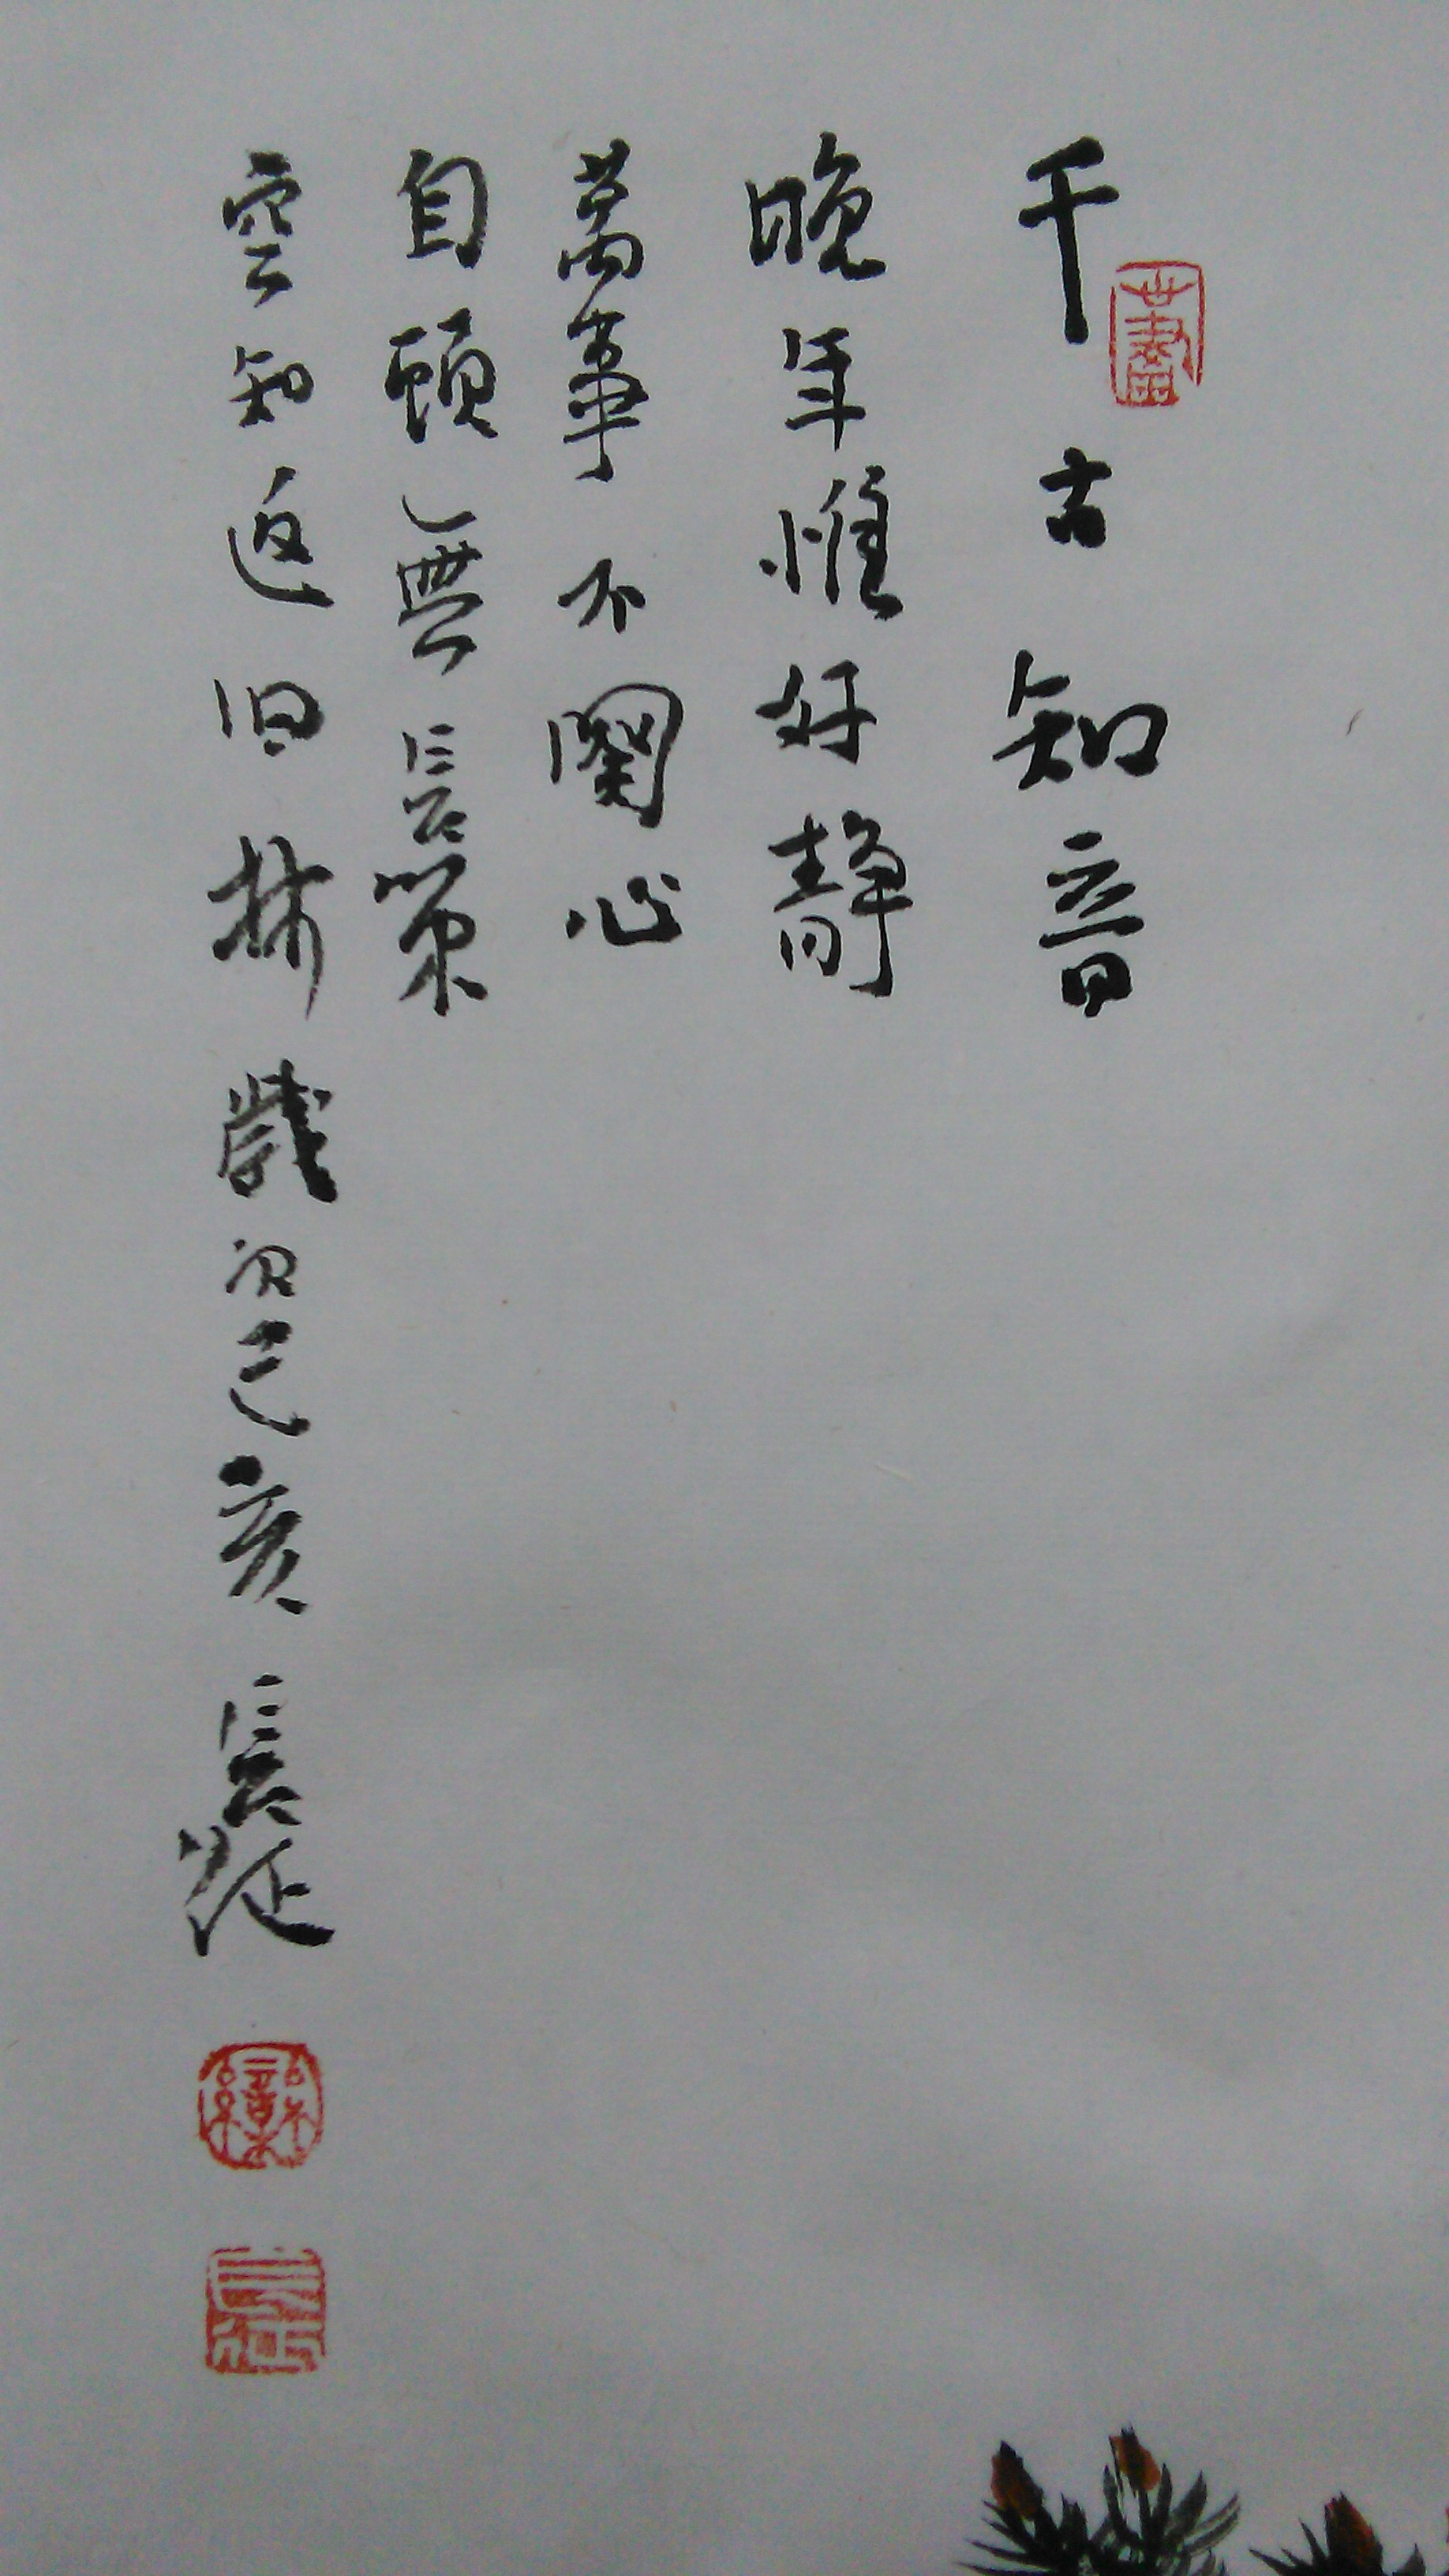 千古知音
晚年惟好靜
萬事不關心
自顧無長策
空知返旧林 歲次己亥 長征